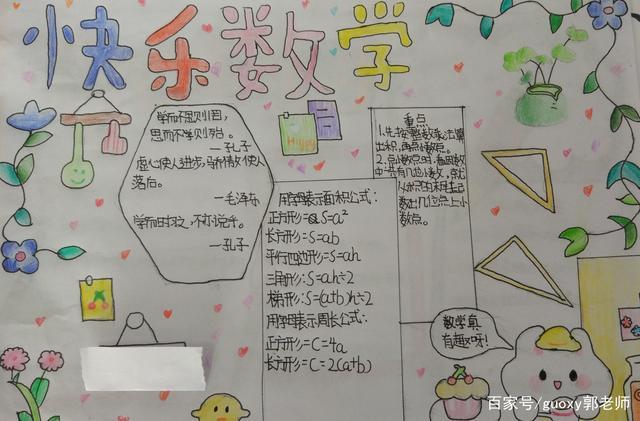 快乐数学
学而不思则罔，
思而不学则殆。
—孔子
虚心使人进步，骄傲使人
落后。
—毛泽东
学而时习之，不亦说乎。
—孔子
Happy
重点
1.先按整数乘法算
出积，再点小数点。
2.点小数点时，看因数
中一共有几位小数，就
从积的右边起
数出几位点上小
数点。
用字母表示面积公式：
正方形=S=a²
长方形=S=ab
平行四边形=S=ah
三角形：S=ah÷2
梯形：S=(a+b)h÷2
用字母表示周长公式：
正方形=C=4a
长方形=C=2(a+b)
数学真
有趣呀！
百家号/guoxy郭老师